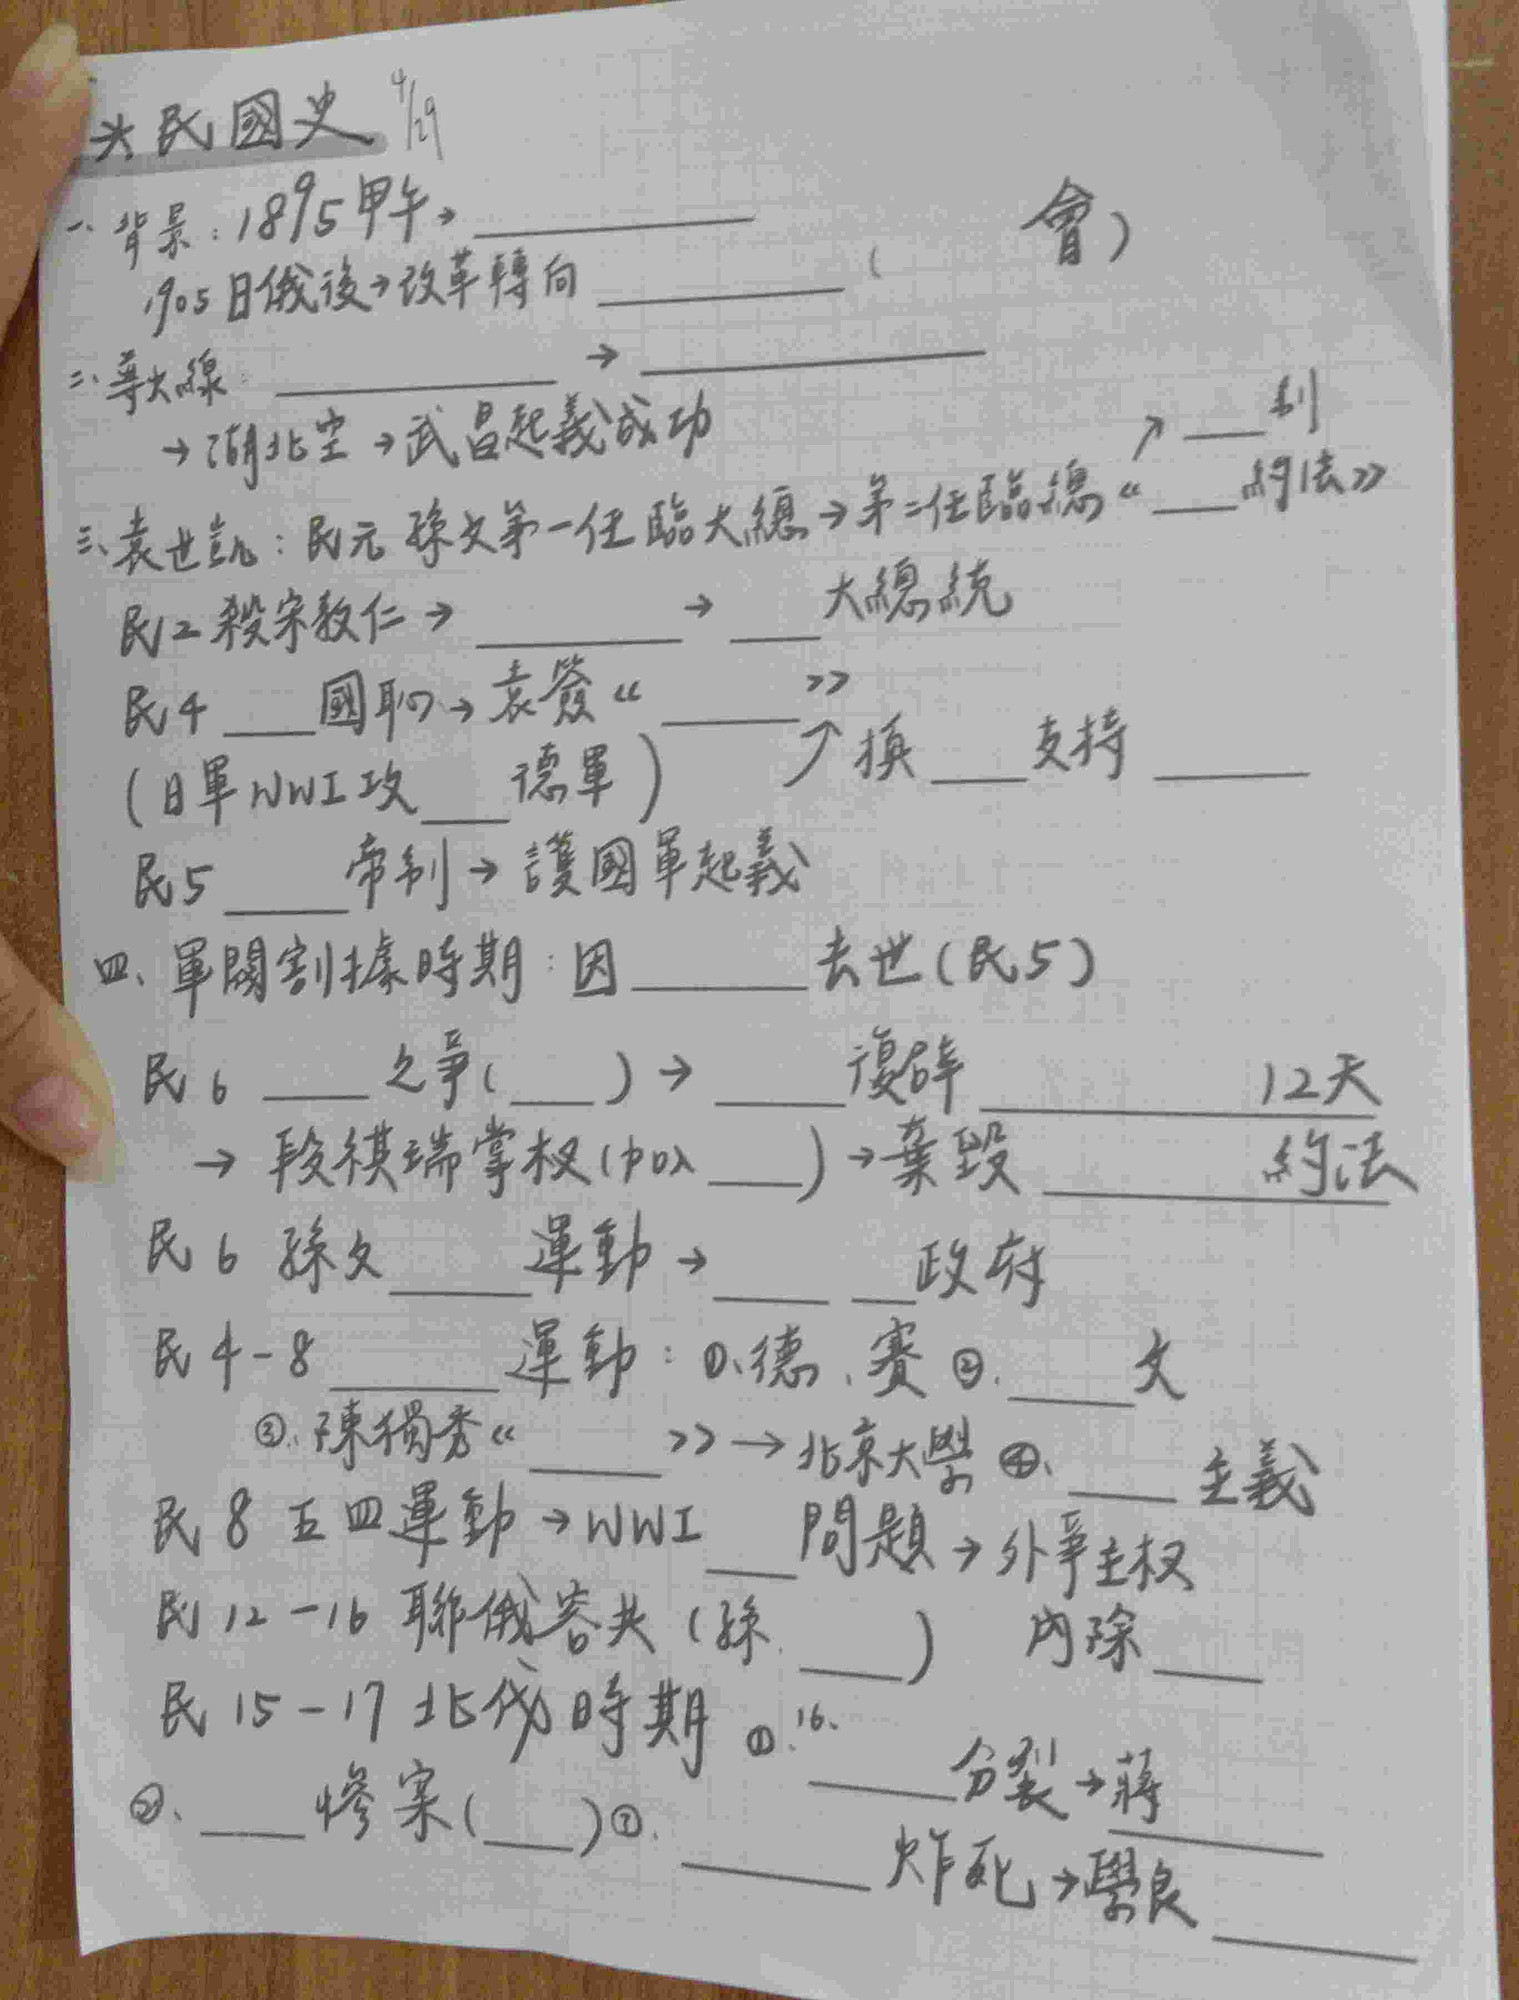 民國史 4/29
一、背景：1895甲午→
1905日俄後→改革轉向 （ 會）
二、導火線： →
→湖北空→武昌起義成功
三、袁世凱：民元 孫文第一任臨大總→第二任臨總《 約法》 ↗ 制
民2 殺宋教仁→ → 大總統
民4 國恥→袁簽《 》
（日軍WWI攻 德軍） ↗換 支持
民5 帝制→護國軍起義
四、軍閥割據時期：因 去世（民5）
民6 之爭（ ）→ 復辟 12天
→段祺瑞掌权（加入 ）→棄毀 約法
民6 孫文 運動→ 政府
民4-8 運動：①、德、賽 ②. 文
③.陳獨秀《 》→北京大學 ④、 主義
民8 五四運動→WWI 問題→外爭主权
民12-16 聯俄容共（孫 ） 內除
民15-17 北伐時期 ①.16、 分裂→蔣
②、 慘案（ ）③. 炸死→學良